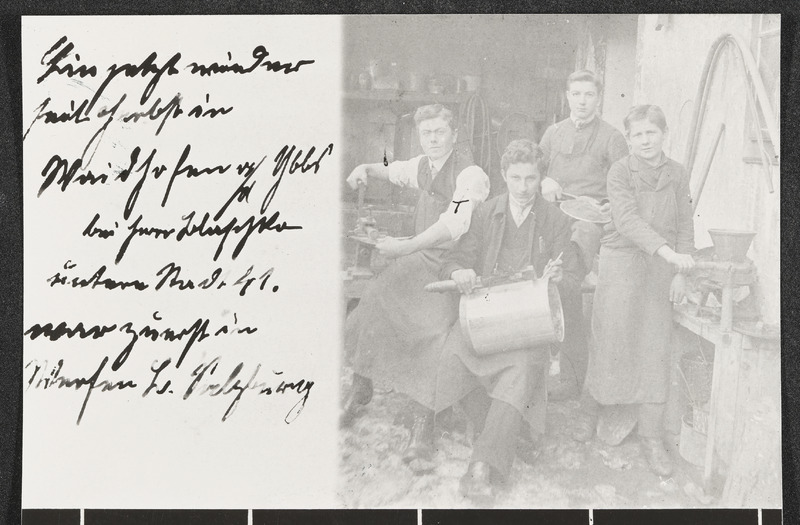 Bin jetzt wieder
seit Herbst in
Waidhofen a/ Ybbs
bei Herr Blaschko
untere Stadt 41.
war zuerst in
Werfen b. Salzburg